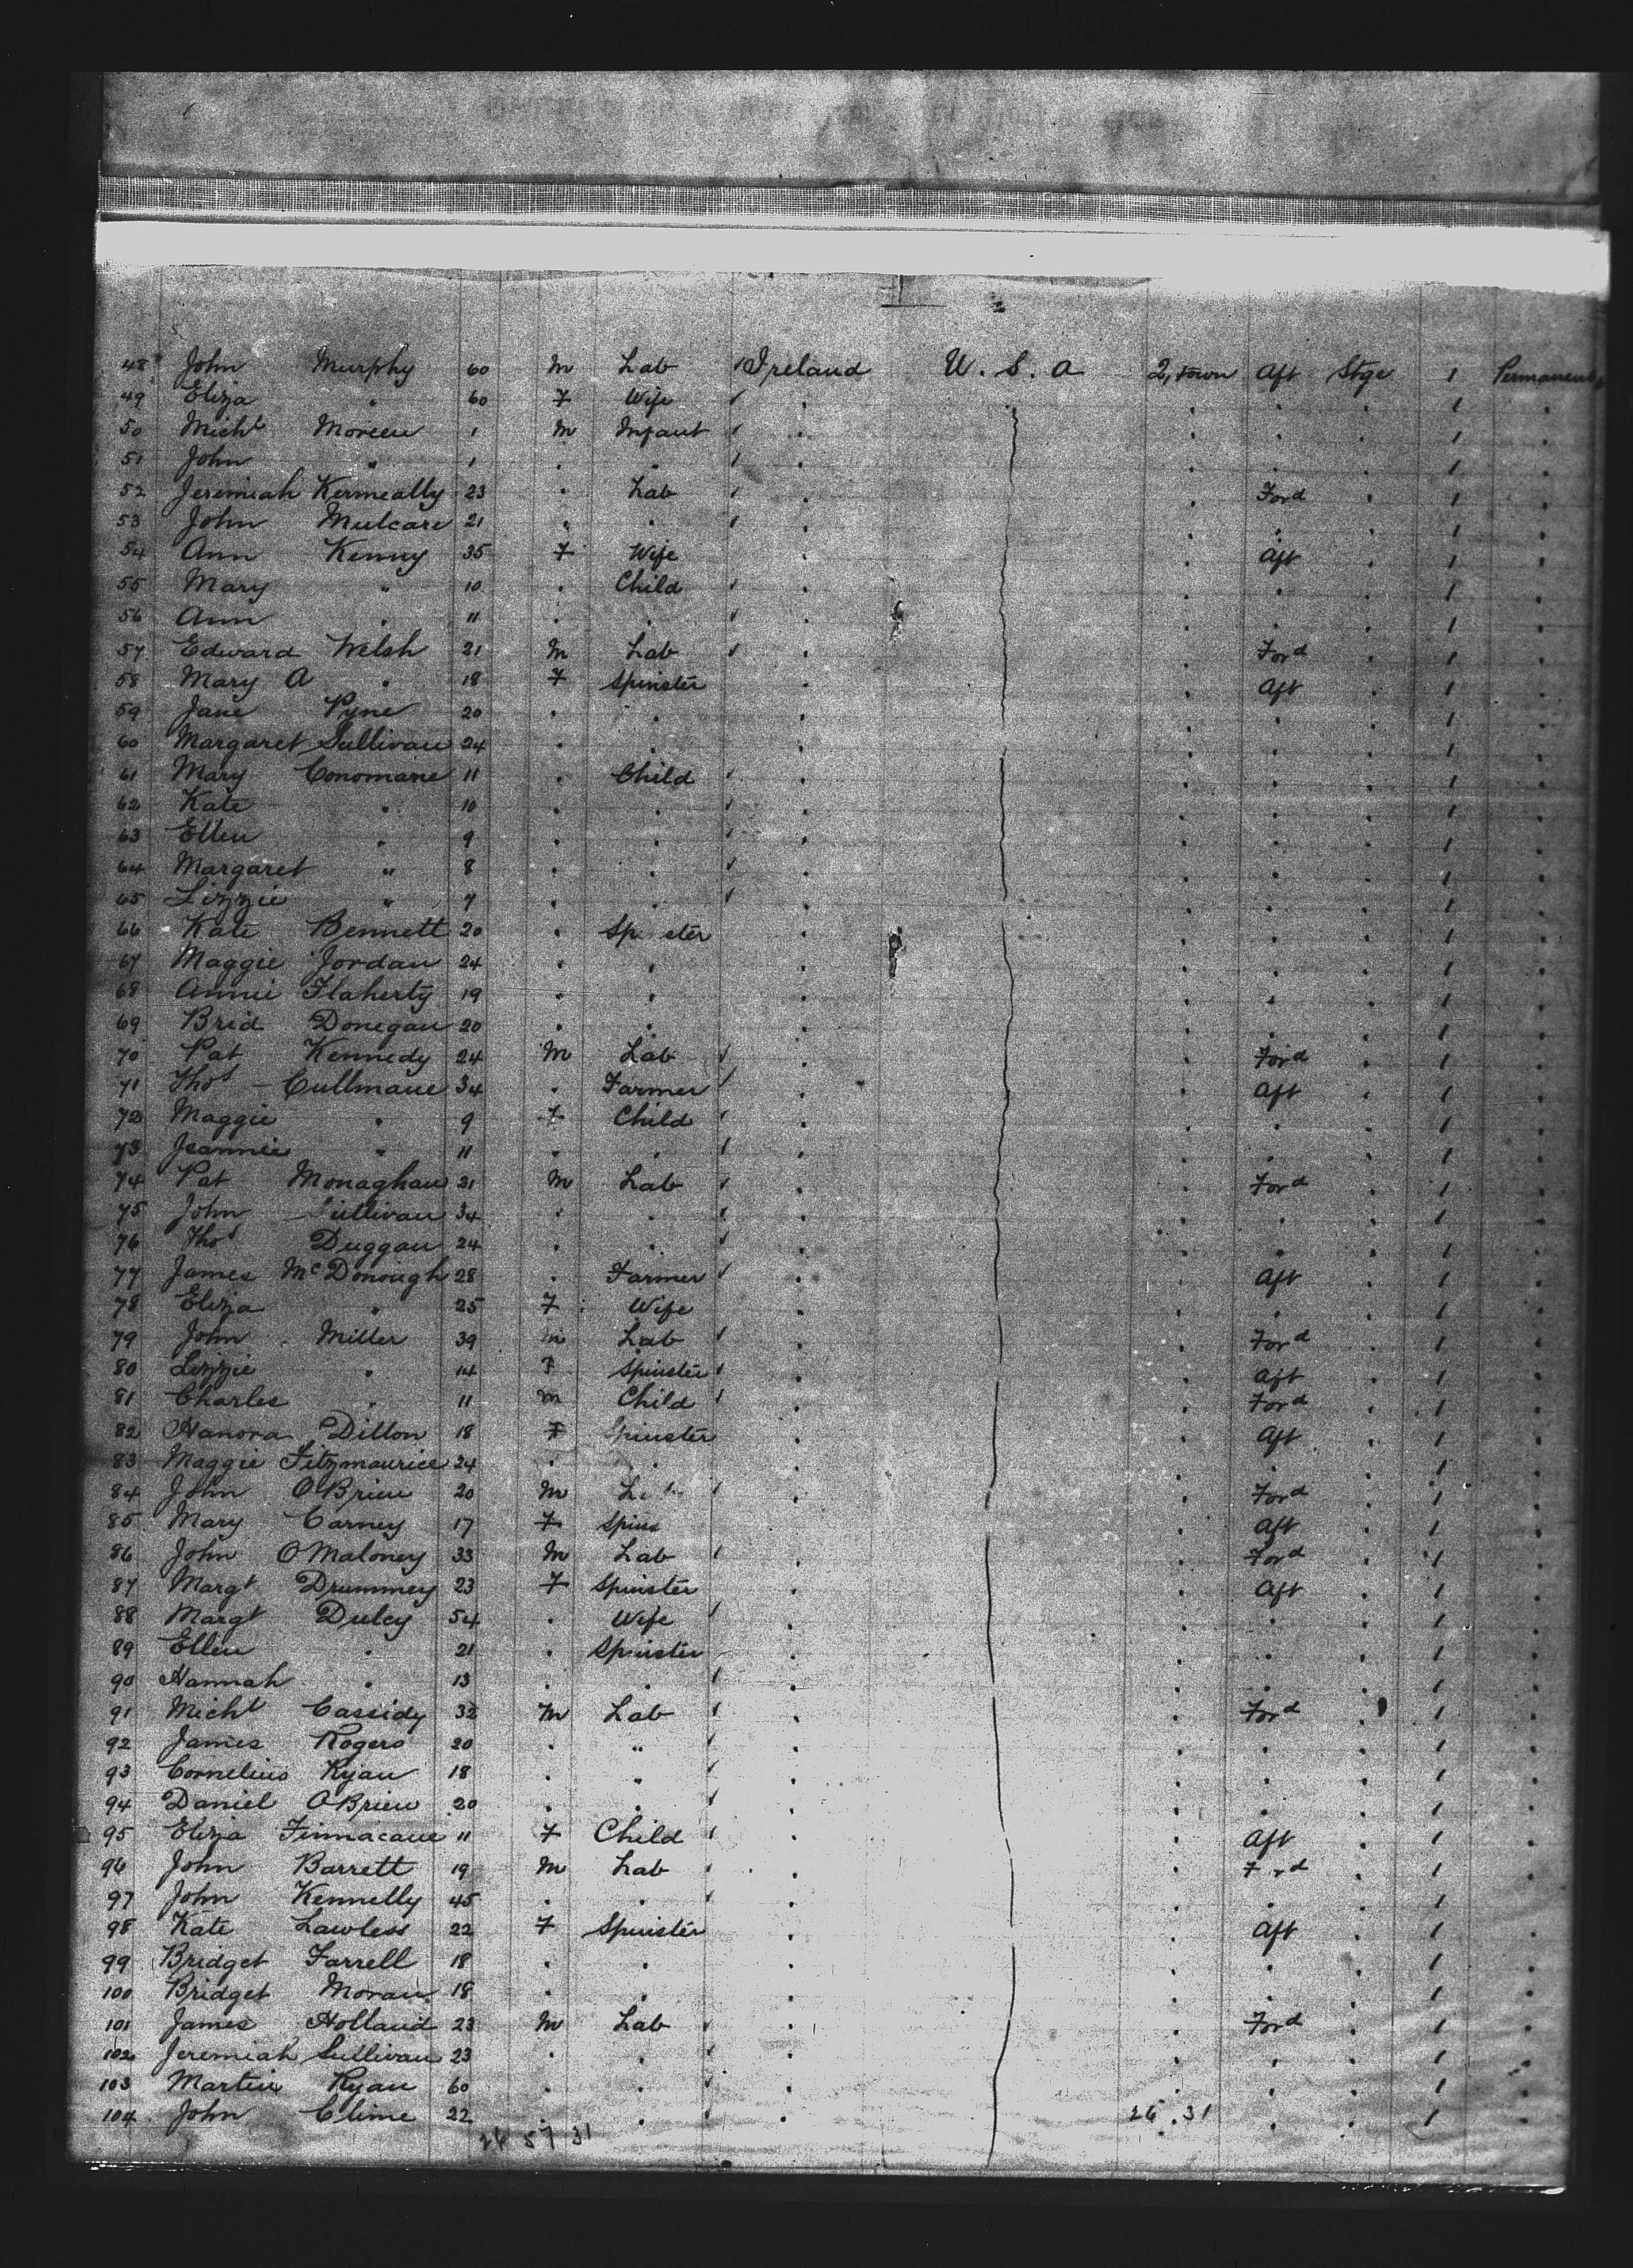 48 John Murphy 60 M Lab Ireland U.S.A 2, town Aft Stge 1 Permanent
49 Eliza " 60 F Wife " " " " 1 "
50 Michl Moreen 1 M Infant " " " " 1 "
51 John " 1 " " " " " " 1 "
52 Jeremiah Kermeally 23 " Lab " " Ford " 1 "
53 John Mulcare 21 " " " " " " 1 "
54 Ann Kenny 35 F Wife " " Aft " 1 "
55 Mary " 10 " Child " " " " 1 "
56 Ann " 11 " " " " " " 1 "
57 Edward Welsh 21 M Lab " " Ford " 1 "
58 Mary A " 18 F Spinster " " Aft " 1 "
59 Jane Pyne 20 " " " " " " 1 "
60 Margaret Sullivan 24 " " " " " " 1 "
61 Mary Conomane 11 " Child " " " " 1 "
62 Kate " 10 " " " " " " 1 "
63 Ellen " 9 " " " " " " 1 "
64 Margaret " 8 " " " " " " 1 "
65 Lizzie " 7 " " " " " " 1 "
66 Kate Bennett 20 " Sp eter " " " " 1 "
67 Maggie Jordan 24 " " " " " " 1 "
68 Annie Flaherty 19 " " " " " " 1 "
69 Brid Donegan 20 " " " " " " 1 "
70 Pat Kennedy 24 M Lab " " Ford " 1 "
71 Thos Cullmane 34 " Farmer " " Aft " 1 "
72 Maggie " 9 F Child " " " " 1 "
73 Jeannie " 11 " " " " " " 1 "
74 Pat Monaghan 31 M Lab " " Ford " 1 "
75 John Sullivan 34 " " " " " " 1 "
76 Thos Duggan 24 " " " " " " 1 "
77 James McDonough 28 " Farmer " " Aft " 1 "
78 Eliza " 25 F Wife " " " " 1 "
79 John Miller 39 M Lab " " Ford " 1 "
80 Lizzie " 14 F Spinster " " Aft " 1 "
81 Charles " 11 M Child " " Ford " 1 "
82 Hanora Dillon 18 F Spinster " " Aft " 1 "
83 Maggie Fitzmaurice 24 " " " " " " 1 "
84 John OBrien 20 M " " Ford " 1 "
85 Mary Carney 17 F Spins " " Aft " 1 "
86 John OMaloney 33 M Lab " " Ford " 1 "
87 Margt Drummey 23 F Spinster " " Aft " 1 "
88 Margt Duley 54 " Wife " " " " 1 "
89 Ellen " 21 " Spinster " " " " 1 "
90 Hannah " 13 " " " " " " 1 "
91 Michl Cassidy 32 M Lab " " Ford " 1 "
92 James Rogers 20 " " " " " " 1 "
93 Cornelius Ryan 18 " " " " " " 1 "
94 Daniel OBrien 20 " " " " " " 1 "
95 Eliza Finnacane 11 F Child " " Aft " 1 "
96 John Barrett 19 M Lab " " Ford " 1 "
97 John Kennelly 45 " " " " " " 1 "
98 Kate Lawless 22 F Spinster " " Aft " 1 "
99 Bridget Farrell 18 " " " " " " 1 "
100 Bridget Moran 18 " " " " " " 1 "
101 James Holland 23 M Lab " " Ford " 1 "
102 Jeremiah Sullivan 23 " " " " " " 1 "
103 Martin Ryan 60 " " " " " " 1 "
104 John Clime 22 " " " 26.31 " " 1 "
26 57 31